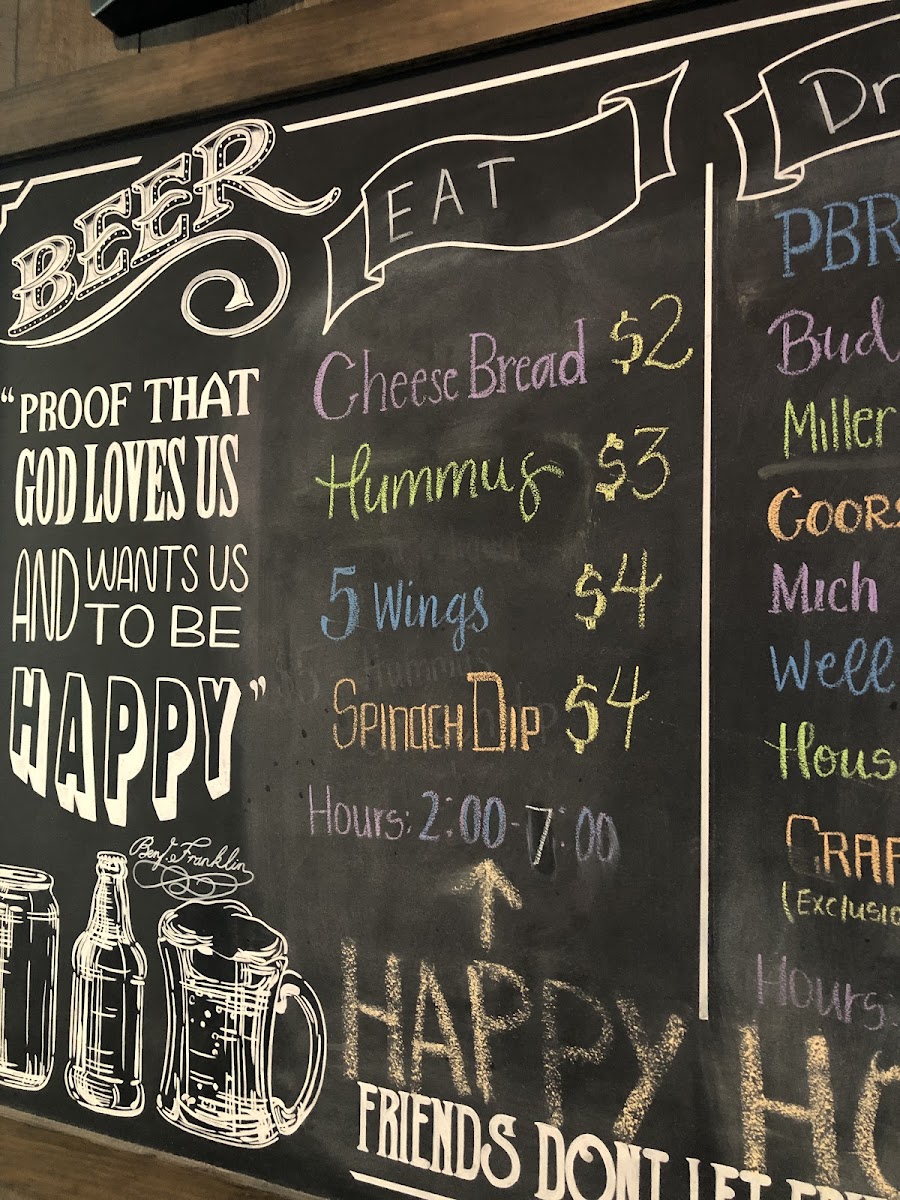 BEER
"PROOF THAT
GOD LOVES US
AND WANTS US
TO BE
HAPPY"
Benj. Franklin
EAT
Cheese Bread $2
Hummus $3
5 Wings $4
Spinach Dip $4
Hours: 2:00-7:00
HAPPY HO
FRIENDS DONT LET FR
Dr
PBR
Bud
Miller
Coors
Mich
Well
Hous
CRAF
(Exclusio
Hours: